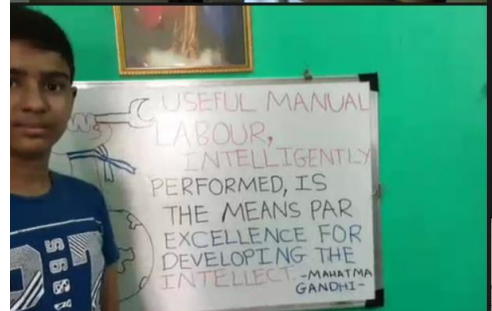 USEFUL MANUAL
LABOUR,
INTELLIGENTLY
PERFORMED, IS
THE MEANS PAR
EXCELLENCE FOR
DEVELOPING THE
INTELLECT. -MAHATMA
GANDHI-